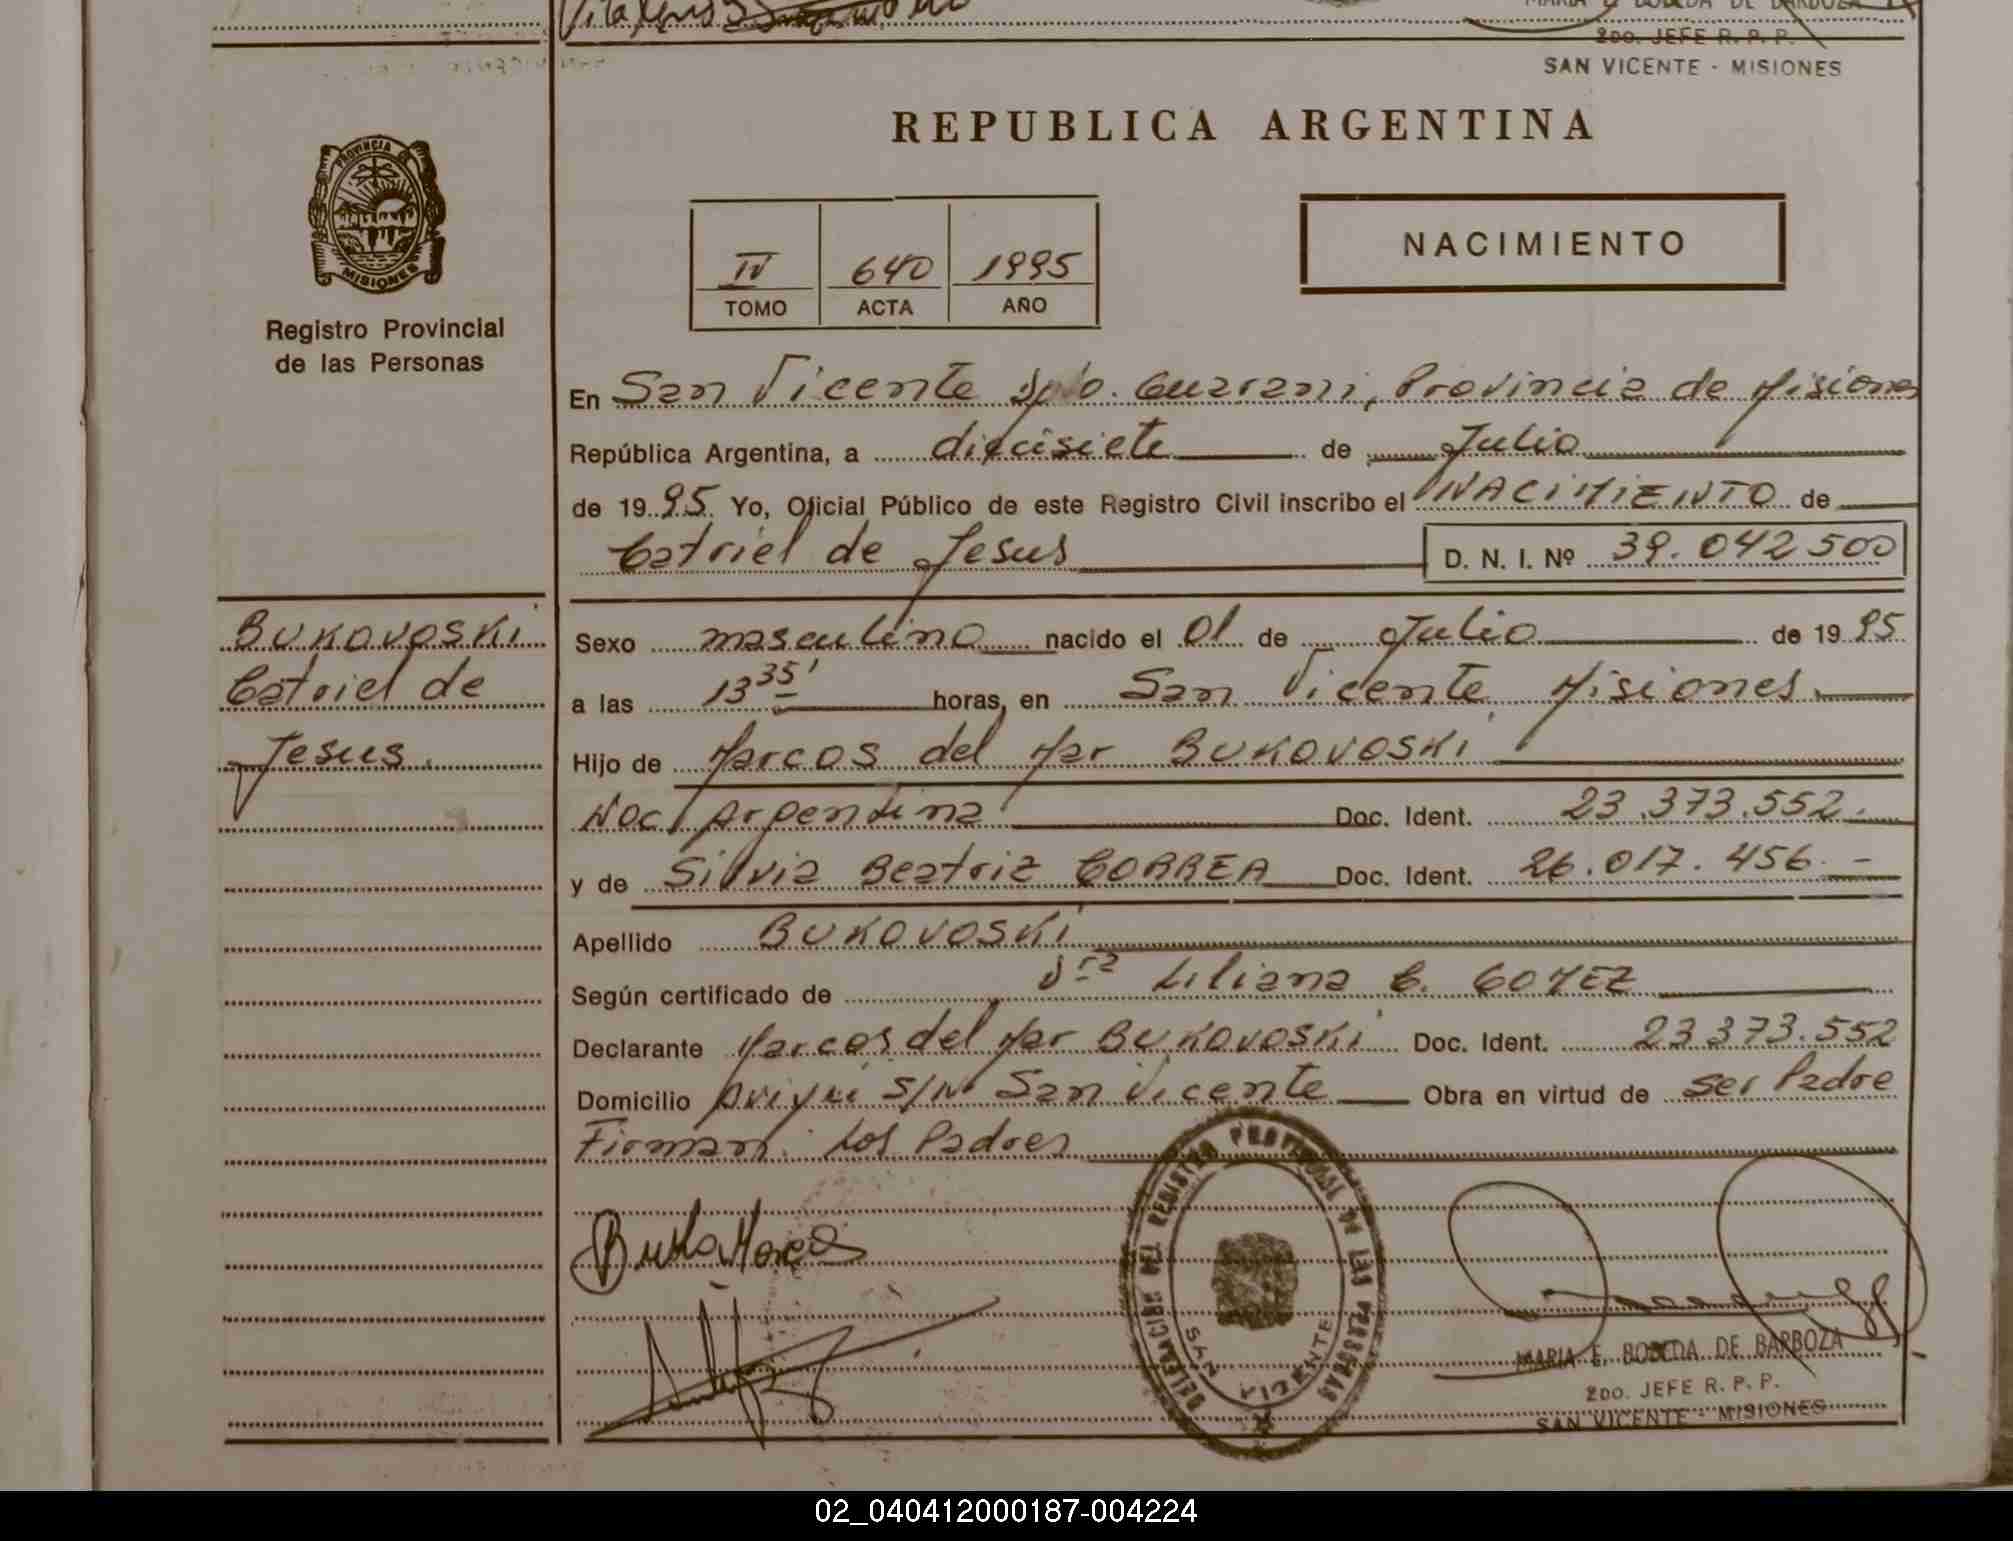 MARIA E. BOBEDA DE BARBOZA
2DO. JEFE R. P. P.
SAN VICENTE - MISIONES
PROVINCIA DE
MISIONES
Registro Provincial
de las Personas
REPUBLICA ARGENTINA
NACIMIENTO
IV 640 1995
TOMO ACTA AÑO
En San Vicente Dpto. Guarani, Provincia de Misiones
República Argentina, a diecisiete de Julio
de 1995 Yo, Oficial Público de este Registro Civil inscribo el NACIMIENTO de
Catriel de Jesus D. N. I. Nº 39.042500
BUKOVOSKI
Catriel de
Jesus.
Sexo masculino nacido el 01 de Julio de 1995
a las 13 35' horas, en San Vicente Misiones.
Hijo de Marcos del Mar BUKOVOSKI
Nac. Argentina Doc. Ident. 23.373.552.
y de Silvia Beatriz CORREA Doc. Ident. 26.017.456.-
Apellido BUKOVOSKI
Según certificado de Dra Liliana C. GOMEZ
Declarante Marcos del Mar BUKOVOSKI Doc. Ident. 23373.552
Domicilio S/Nº San Vicente Obra en virtud de Ser Padre
Firman: Los Padres
DELEGACION DEL REGISTRO PROVINCIAL DE LAS PERSONAS
SAN VICENTE
MARIA E. BOBEDA DE BARBOZA
2DO. JEFE R. P. P.
SAN VICENTE - MISIONES
02_040412000187-004224